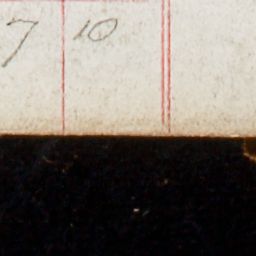 7 10